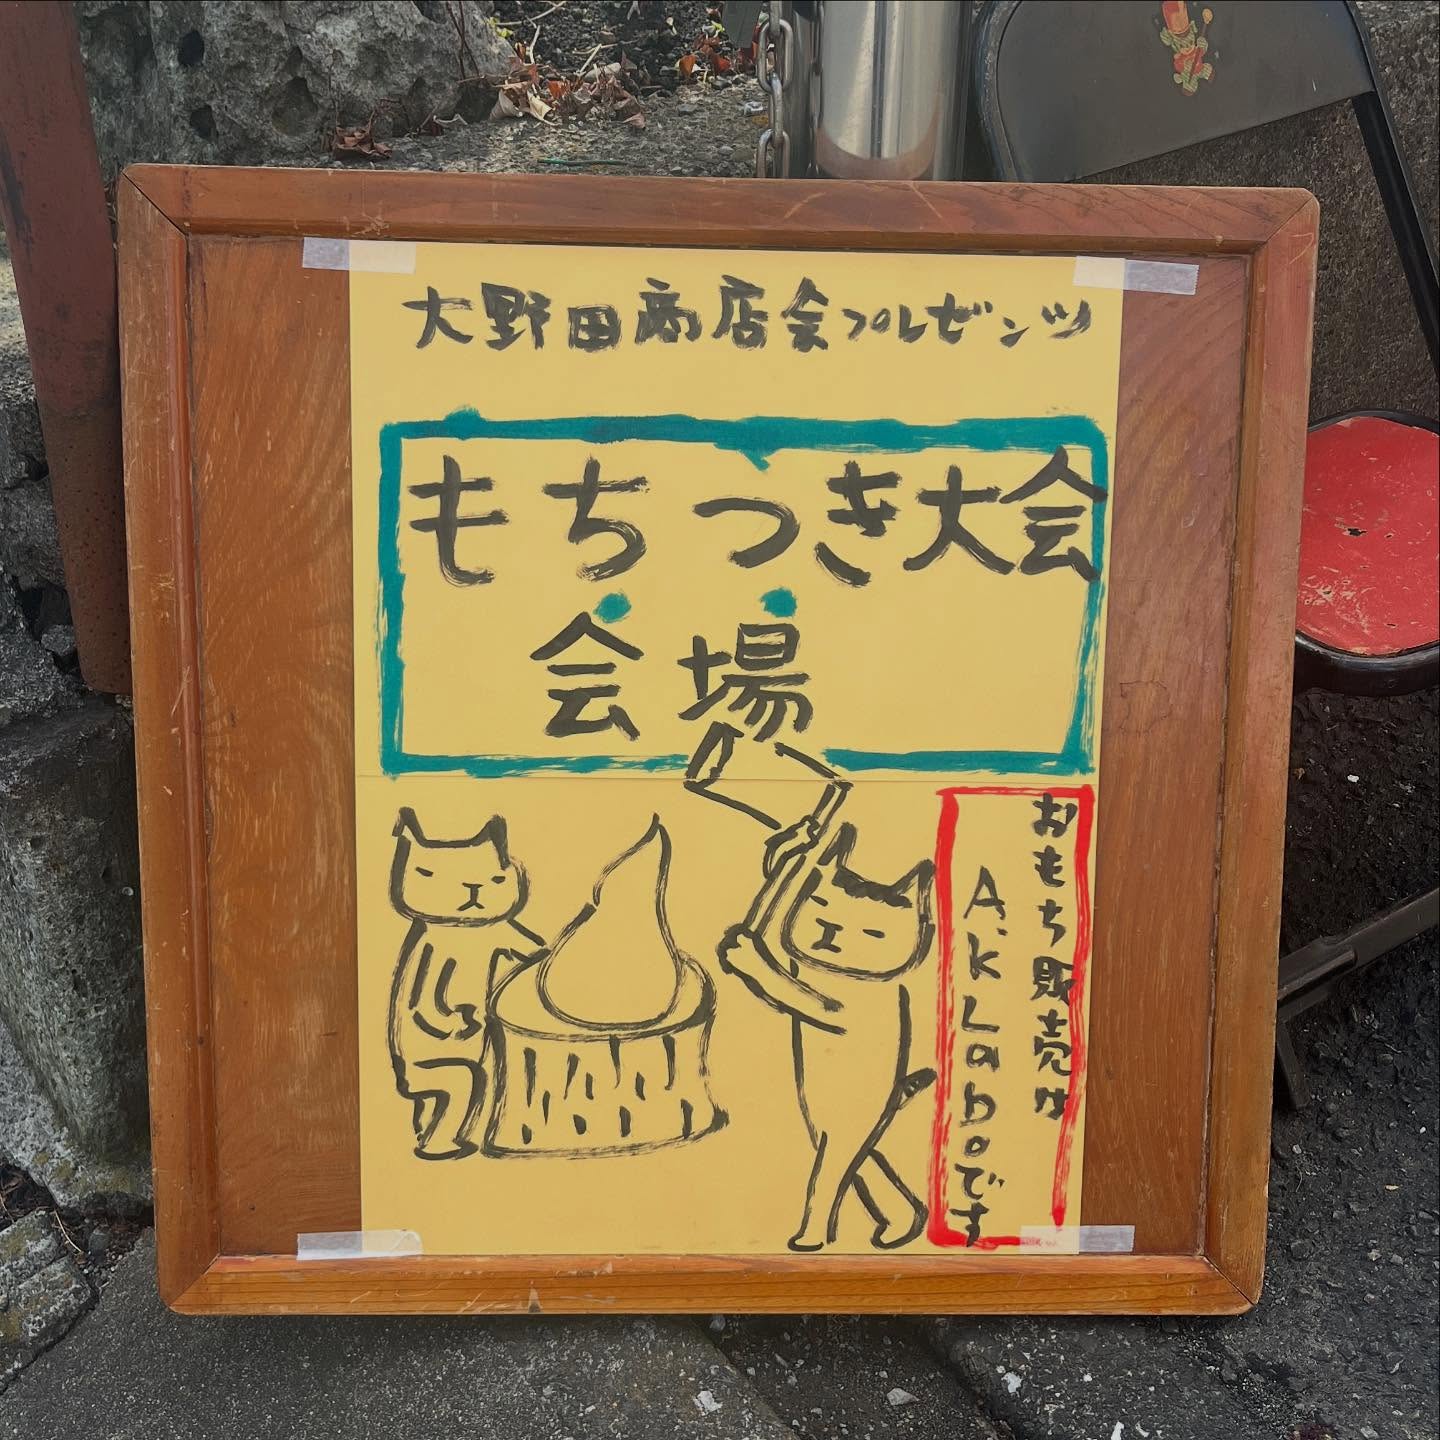 大野田商店会プレゼンツ
もちつき大会
会場
おもち販売は
A.K Laboです